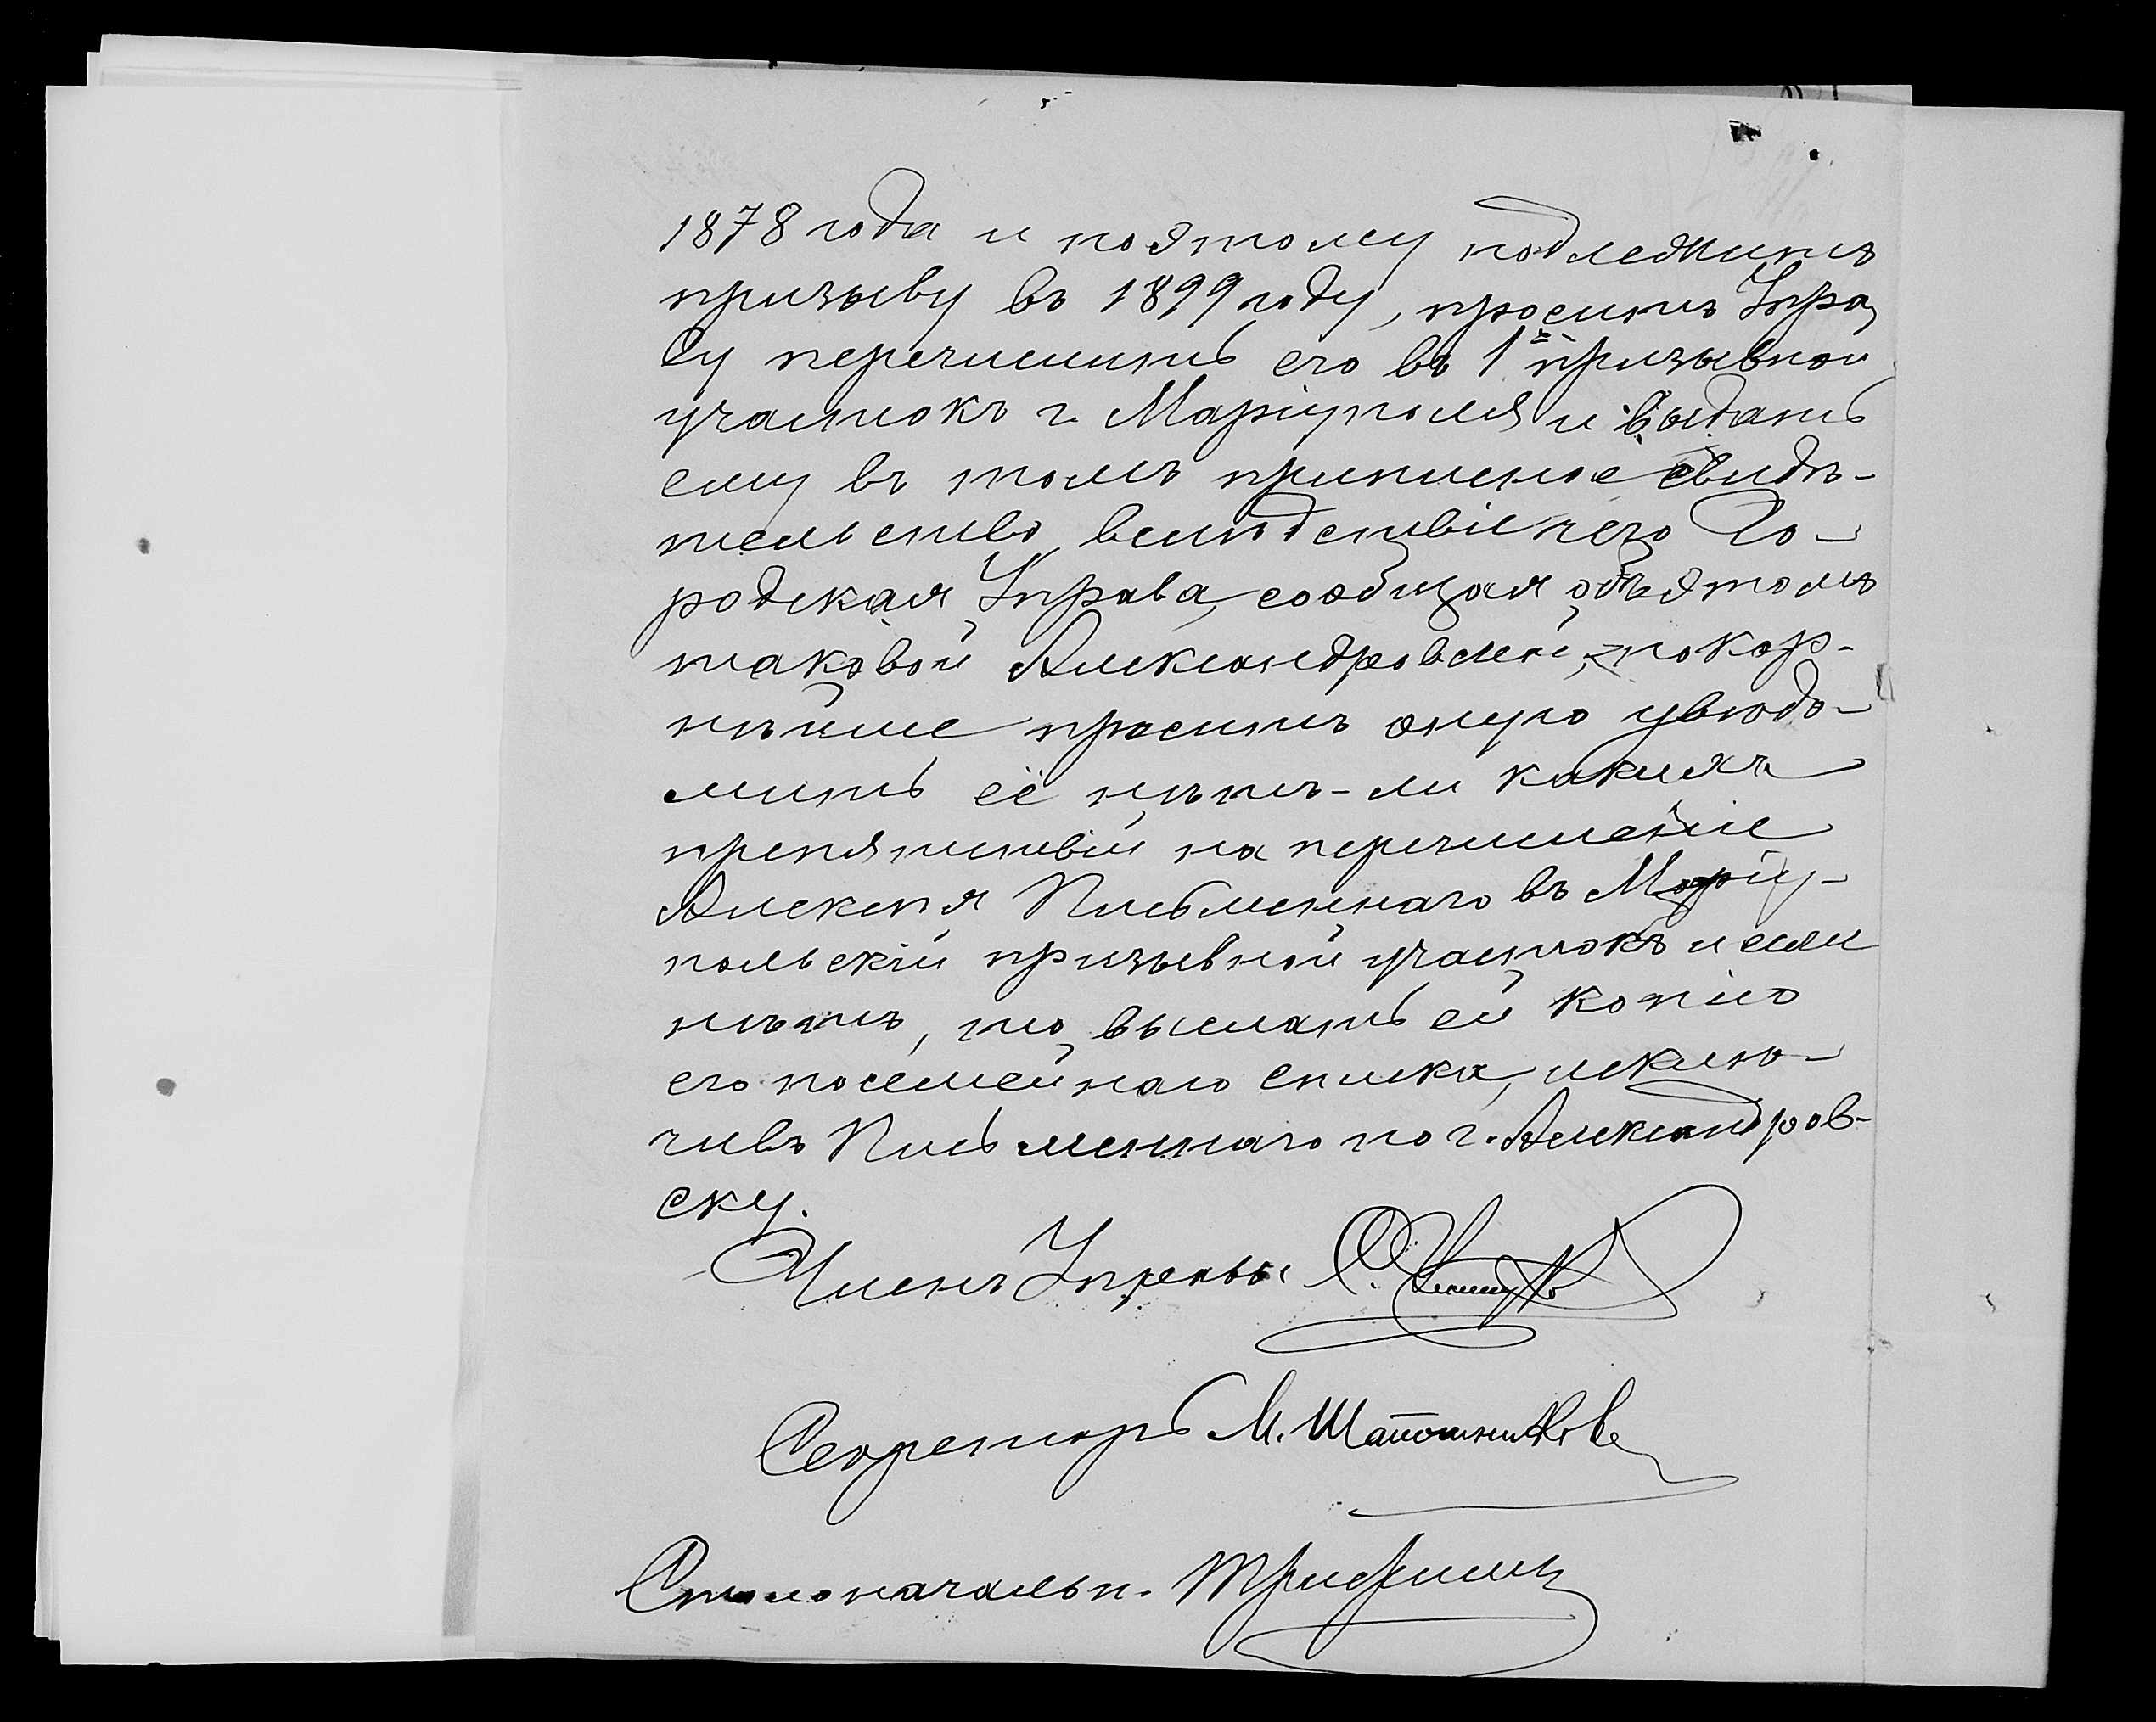 1878 года и поэтому подлежитъ
призыву въ 1899 году, проситъ Упра
ву перечислить его въ 1й призывной
участокъ г. Маріуполя и выдать
ему въ томъ приписное свидѣ-
тельство, вслѣдствіе чего Го-
родская Управа, сообщая объ этомъ
таковой Александровской, покор-
нѣйше проситъ оную увѣдо-
мить её нѣтъ-ли какихъ
препятствій на перечисленіе
Алексѣя Письменнаго въ Маріу-
польскій призывной участокъ и если
нѣтъ, то выслать ей копію
его посемейнаго списка, исклю-
чивъ Письменнаго по г. Александров-
ску.
Членъ Управы
Секретарь М. Шапошниковъ
Столоначальн.